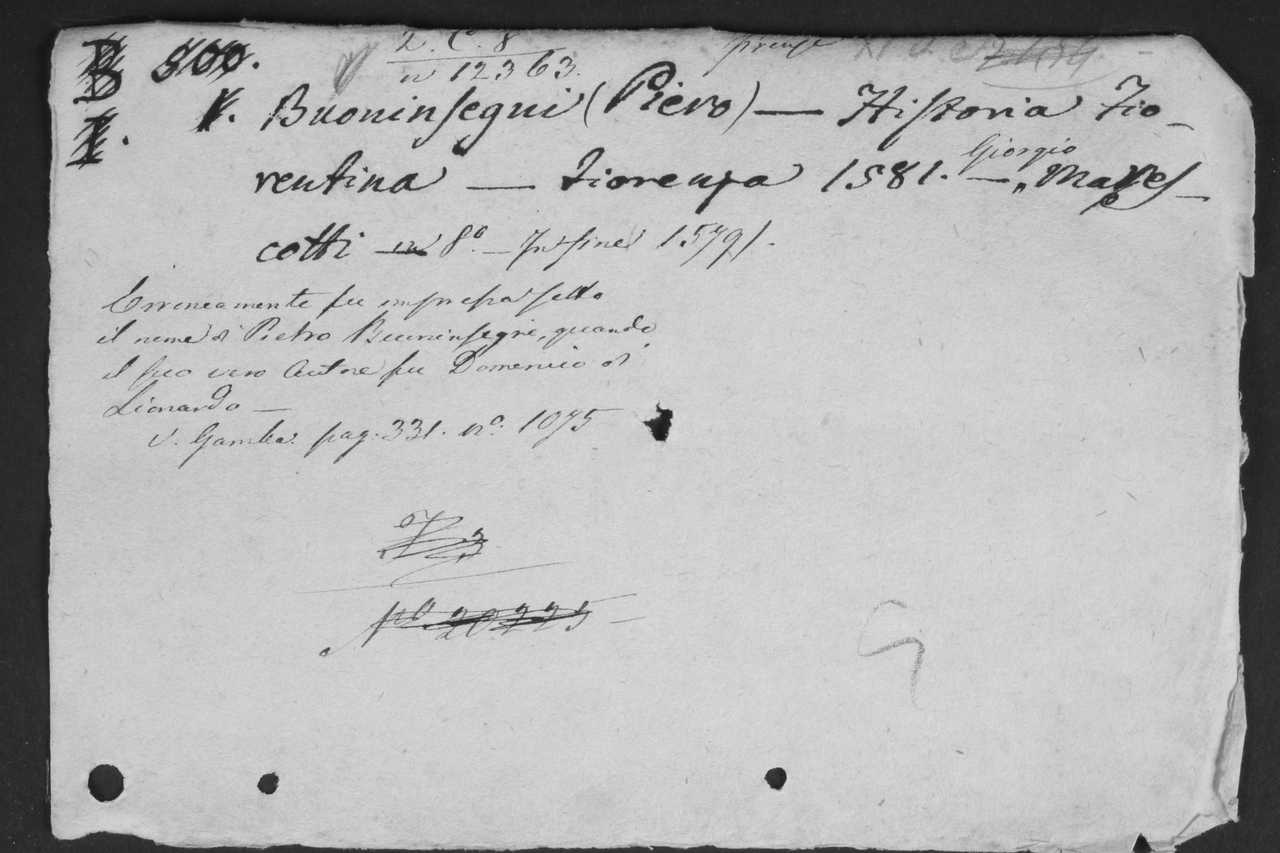 2. C. 8
B 500.
n 12363.
I. 1. Buoninsegni (Piero) — Historia Fio-
Giorgio
rentina — Fiorenza 1581. — Mares-
cotti in 8º — In fine 1579.
Erroneamente fu impresso sotto
il nome di Pietro Buoninsegni, quando
il suo vero Autore fu Domenico di
Lionardo —
V. Gamba pag. 331. nº. 1075
Nº 20225